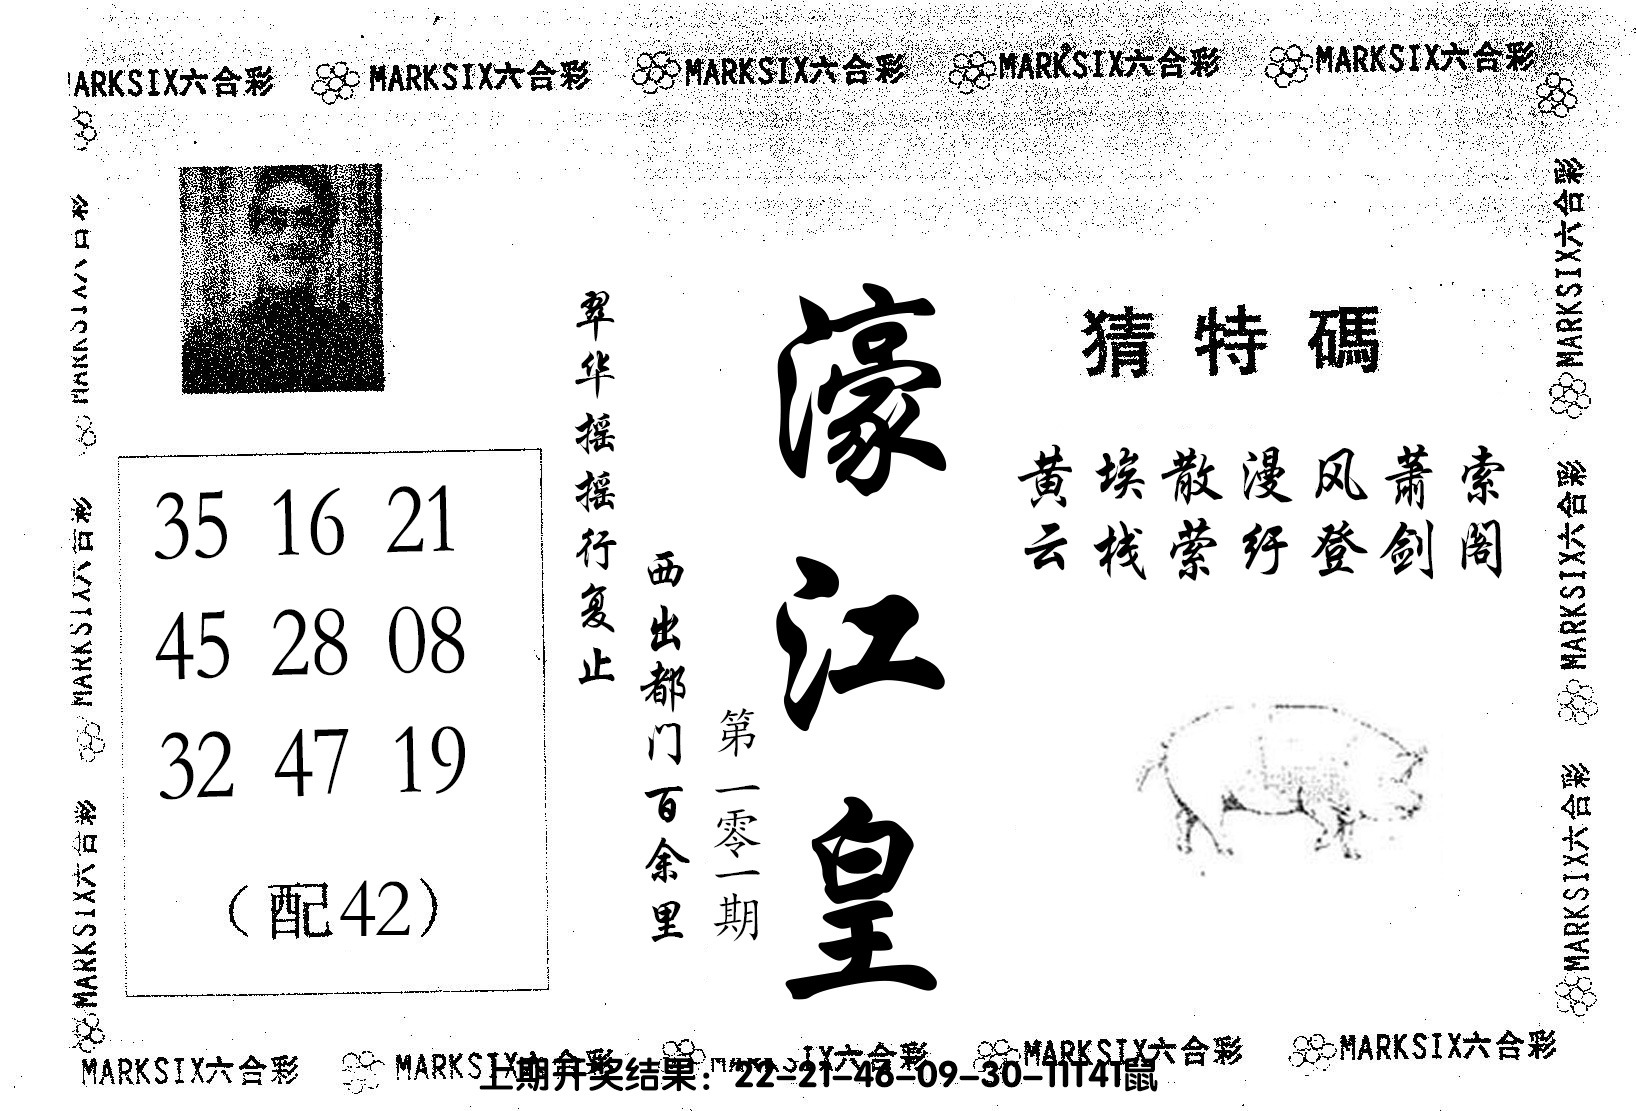 MARKSIX六合彩 MARKSIX六合彩 MARKSIX六合彩 MARKSIX六合彩 MARKSIX六合彩
猜特碼
黄埃散漫风萧索
云栈萦纡登剑阁
濠江皇
第一零一期
翠华摇摇行复止
西出都门百余里
35 16 21
45 28 08
32 47 19
（配42）
MARKSIX六合彩
MARKSIX六合彩
MARKSIX六合彩
MARKSIX六合彩
MARKSIX六合彩
MARKSIX六合彩
MARKSIX六合彩 MARKSIX六合彩 MARKSIX六合彩 MARKSIX六合彩 MARKSIX六合彩
上期开奖结果：22-21-46-09-30-11T41鼠